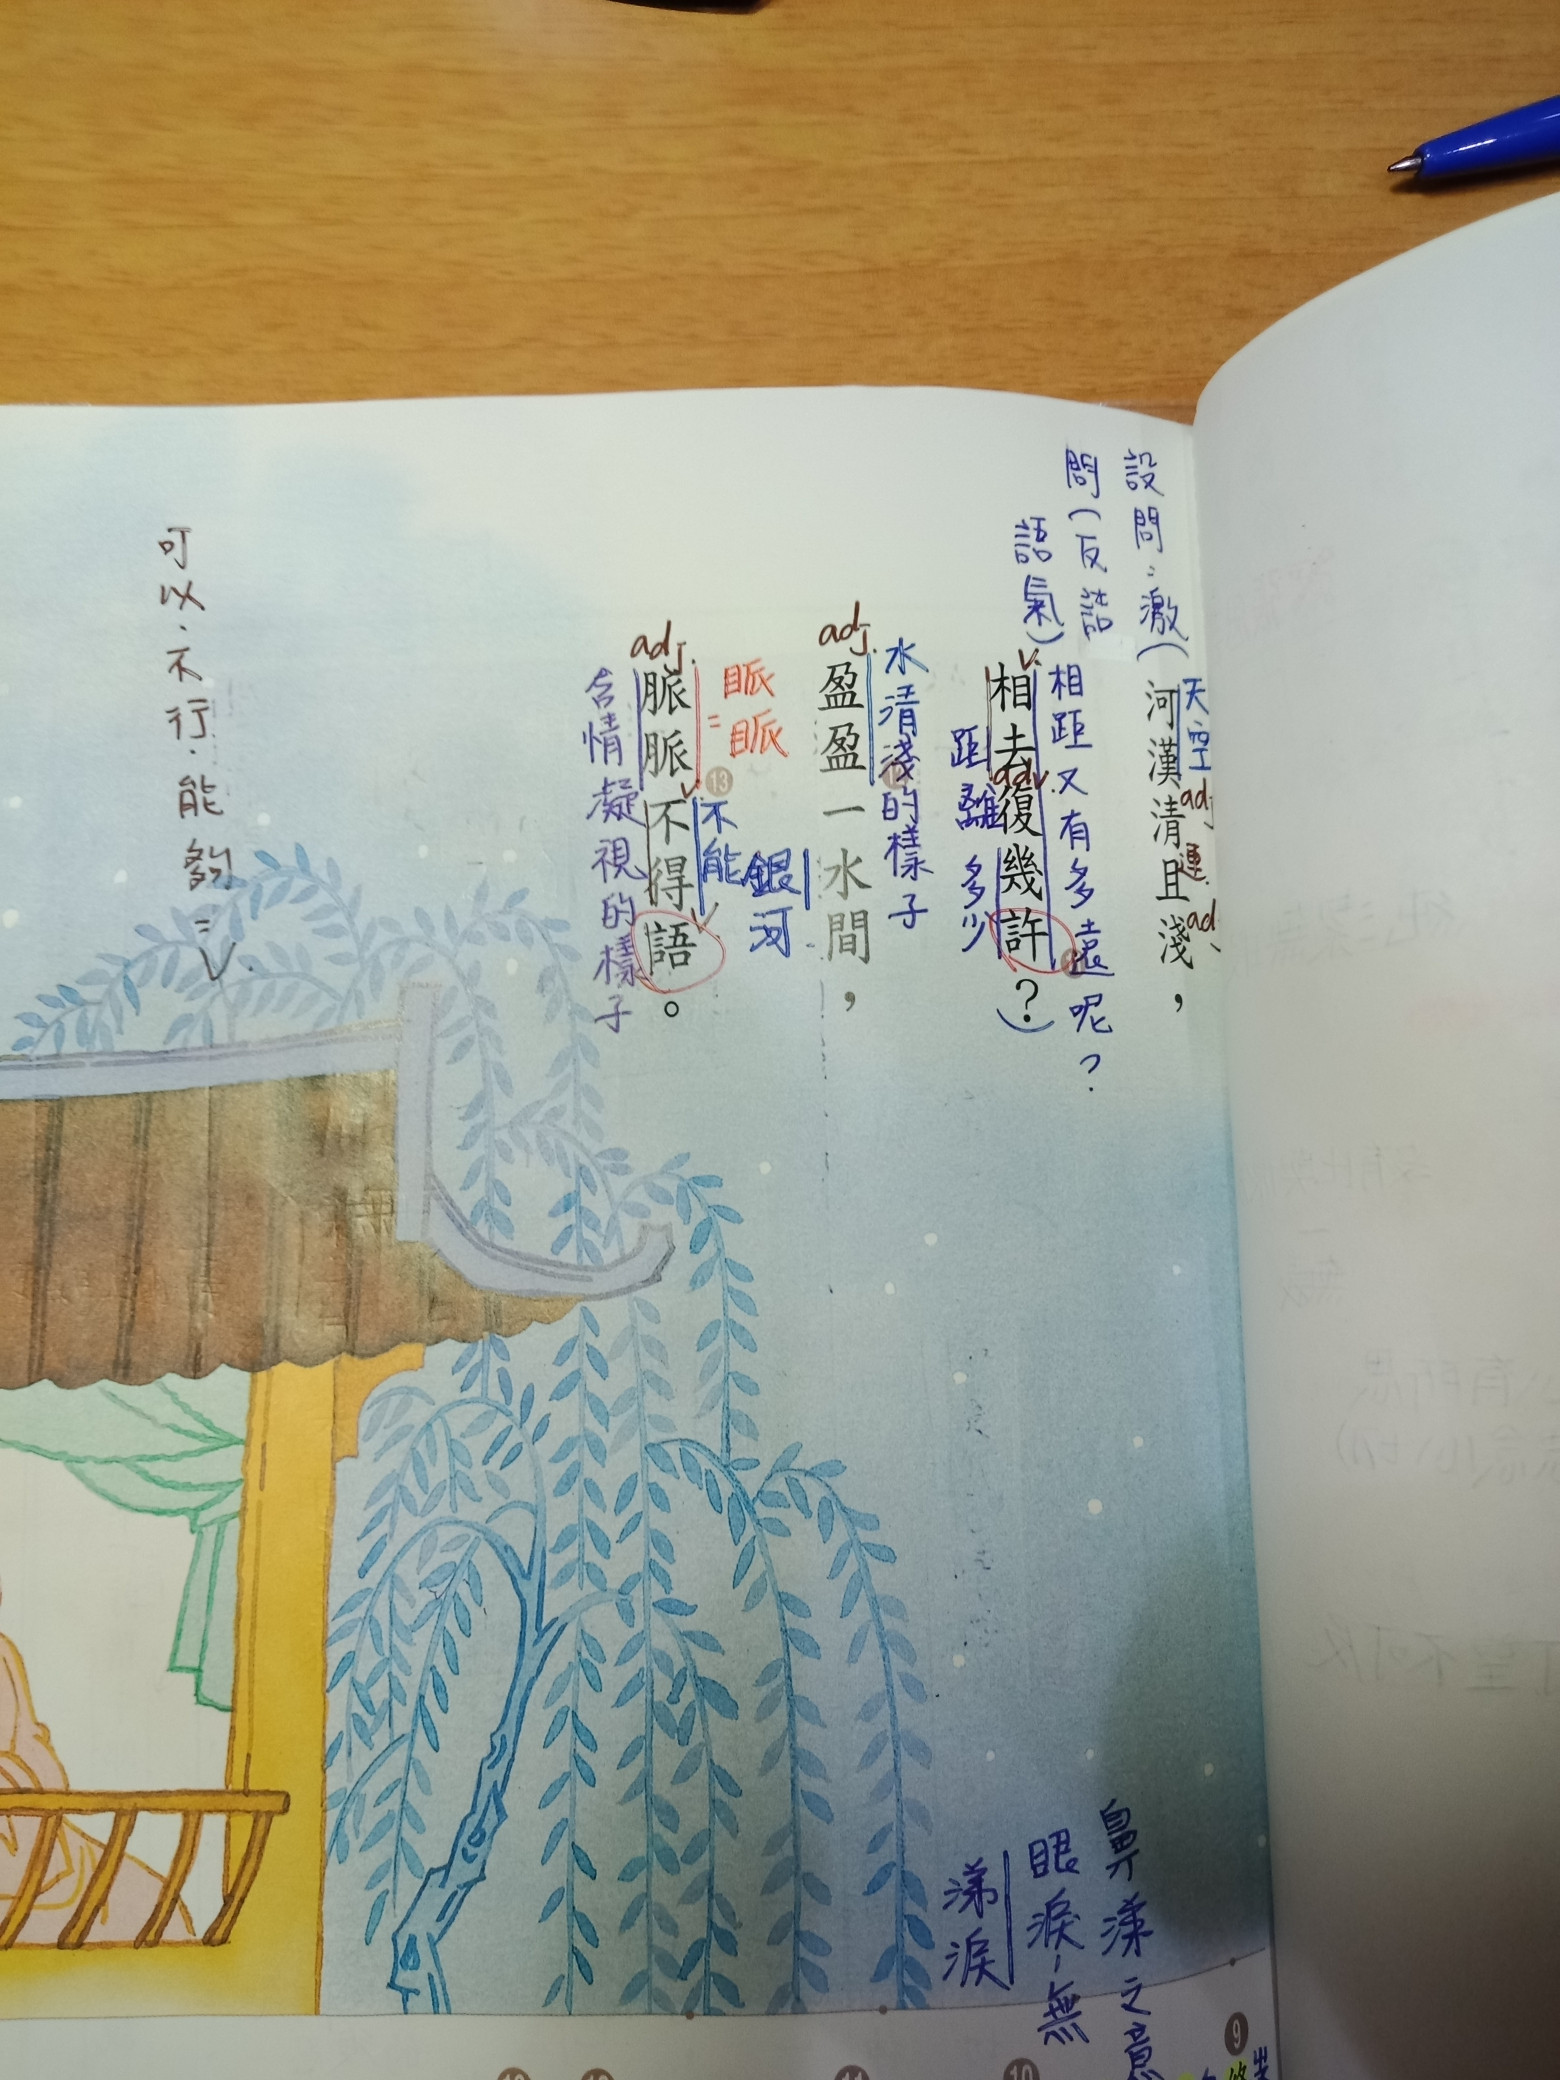 設問:激(
問(反詰
語氣)
天空
adj
連.
ad
河漢清且淺,
相距又有多遠呢?
v.
adv.
相去復幾許?
距離
多少
水清淺的樣子
adj.
盈盈一水間,
銀河
眽眽
=
13
不能
adj.
v
v
脈脈不得語。
含情凝視的樣子
可以.不行.能夠=v.
鼻涕之意
眼淚,無
涕淚
9
10
11